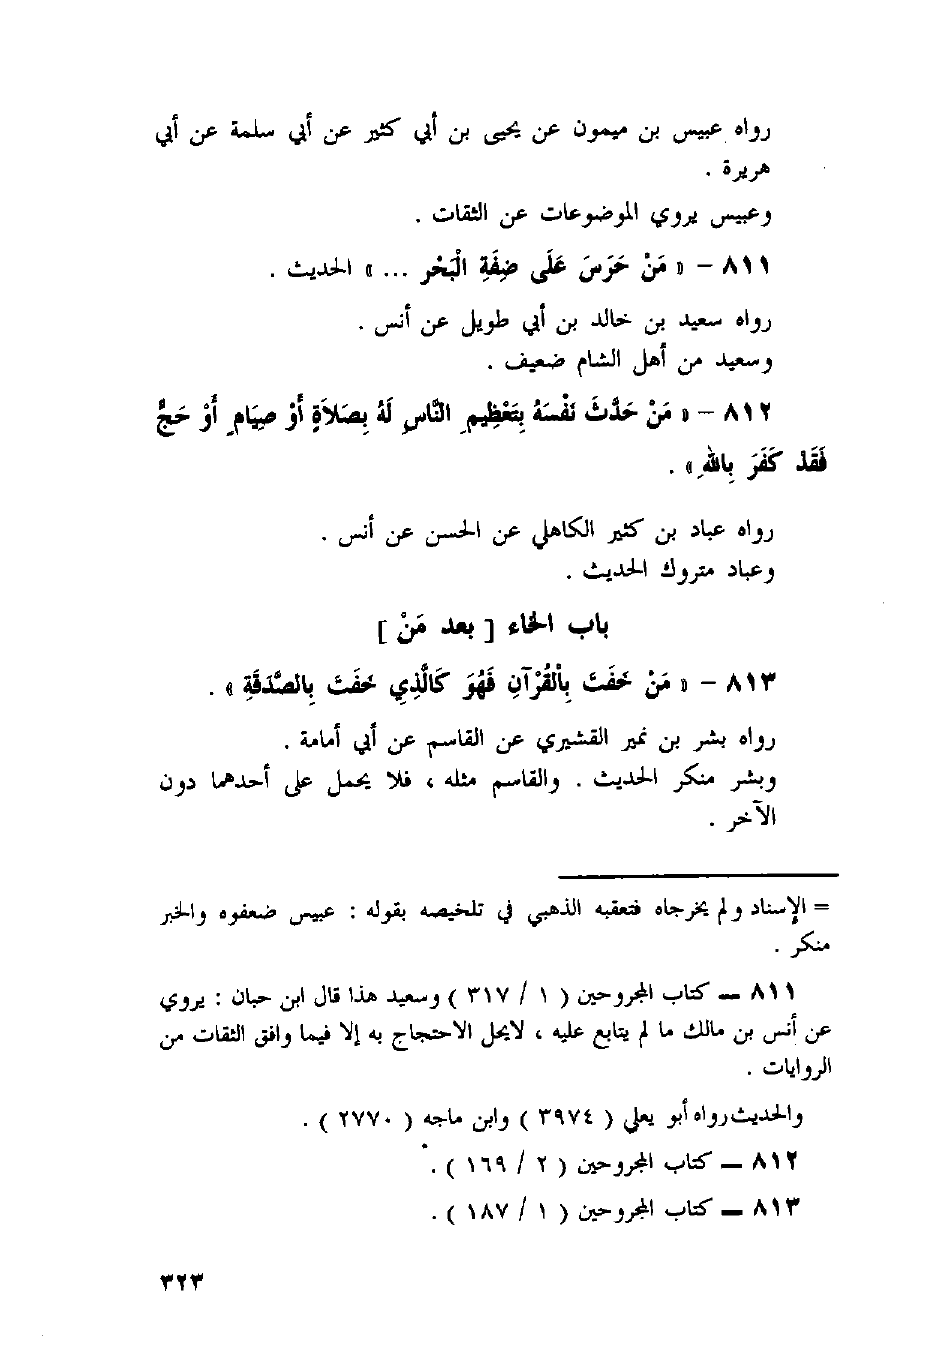 رواه عبيس بن ميمون عن يحيى بن أبي كثير عن أبي سلمة عن أبي
هريرة .
وعبيس يروي الموضوعات عن الثقات .
٨١١ – « مَنْ حَرَسَ عَلَى ضِفَةِ الْبَحْرِ ... » الحديث .
رواه سعيد بن خالد بن أبي طويل عن أنس .
وسعيد من أهل الشام ضعيف .
٨١٢ – « مَنْ حَدَّثَ نَفْسَهُ بِتَعْظِيمِ النَّاسِ لَهُ بِصَلاَةٍ أَوْ صِيَامٍ أَوْ حَجٍّ
فَقَدْ كَفَرَ بِاللهِ » .
رواه عباد بن كثير الكاهلي عن الحسن عن أنس .
وعباد متروك الحديث .
باب الخاء [ بعد مَنْ ]
٨١٣ – « مَنْ خَفَتَ بِالْقُرْآنِ فَهُوَ كَالَّذِي خَفَتَ بِالصَّدَقَةِ » .
رواه بشر بن نمير القشيري عن القاسم عن أبي أمامة .
وبشر منكر الحديث . والقاسم مثله ، فلا يحمل على أحدهما دون
الآخر .
= الإسناد ولم يخرجاه فتعقبه الذهبي في تلخيصه بقوله : عبيس ضعفوه والخبر
منكر .
٨١١ – كتاب المجروحين ( ١ / ٣١٧ ) وسعيد هذا قال ابن حبان : يروي
عن أنس بن مالك ما لم يتابع عليه ، لايحل الاحتجاج به إلا فيما وافق الثقات من
الروايات .
والحديث رواه أبو يعلي ( ٣٩٧٤ ) وابن ماجه ( ٢٧٧٠ ) .
٨١٢ – كتاب المجروحين ( ٢ / ١٦٩ ) .
٨١٣ – كتاب المجروحين ( ١ / ١٨٧ ) .
٣٢٣